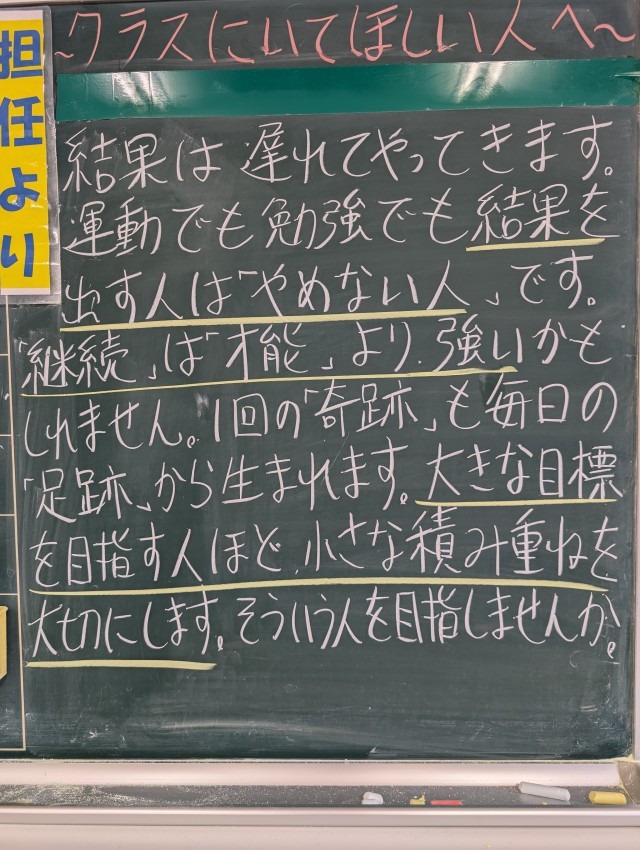 担任より
~クラスにいてほしい人へ~
結果は遅れてやってきます。
運動でも勉強でも結果を
出す人は「やめない人」です。
「継続」は「才能」より強いかも
しれません。1回の「奇跡」も毎日の
「足跡」から生まれます。大きな目標
を目指す人ほど、小さな積み重ねを
大切にします。そういう人を目指しませんか。